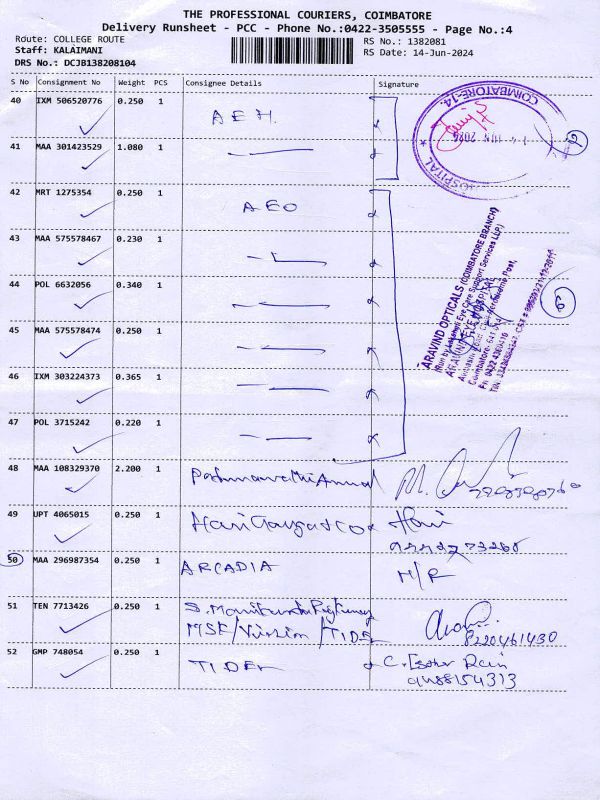 THE PROFESSIONAL COURIERS, COIMBATORE
Delivery Runsheet - PCC - Phone No.:0422-3505555 - Page No.:4
Route: COLLEGE ROUTE
Staff: KALAIMANI
DRS No.: DCJB138208104
RS No.: 1382081
RS Date: 14-Jun-2024
S No Consignment No Weight PCS Consignee Details Signature
40 IXM 506520776 0.250 1 AEH.
41 MAA 301423529 1.080 1
42 MRT 1275354 0.250 1 AEO
43 MAA 575578467 0.230 1
44 POL 6632056 0.340 1
45 MAA 575578474 0.250 1
46 IXM 303224373 0.365 1
47 POL 3715242 0.220 1
48 MAA 108329370 2.200 1
49 UPT 4065015 0.250 1 Hari
50 MAA 296987354 0.250 1 ARCADIA M/R
51 TEN 7713426 0.250 1 S.
MSE/Version/TIDEL 8220461430
52 GMP 748054 0.250 1 TIDEL C. Esther Rani
9488154313
COIMBATORE-14.
HOSPITAL
6
ARAVIND OPTICALS (COIMBATORE BRANCH)
(Run by Eye Care Support Services LLP)
ARAVIND EYE HOSPITAL
6